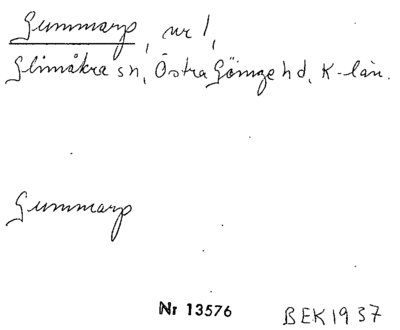 Gummarp, nr 1,
Glimåkra sn, Östra Göinge hd, K-län.
Gummarp
Nr 13576 BEK1937